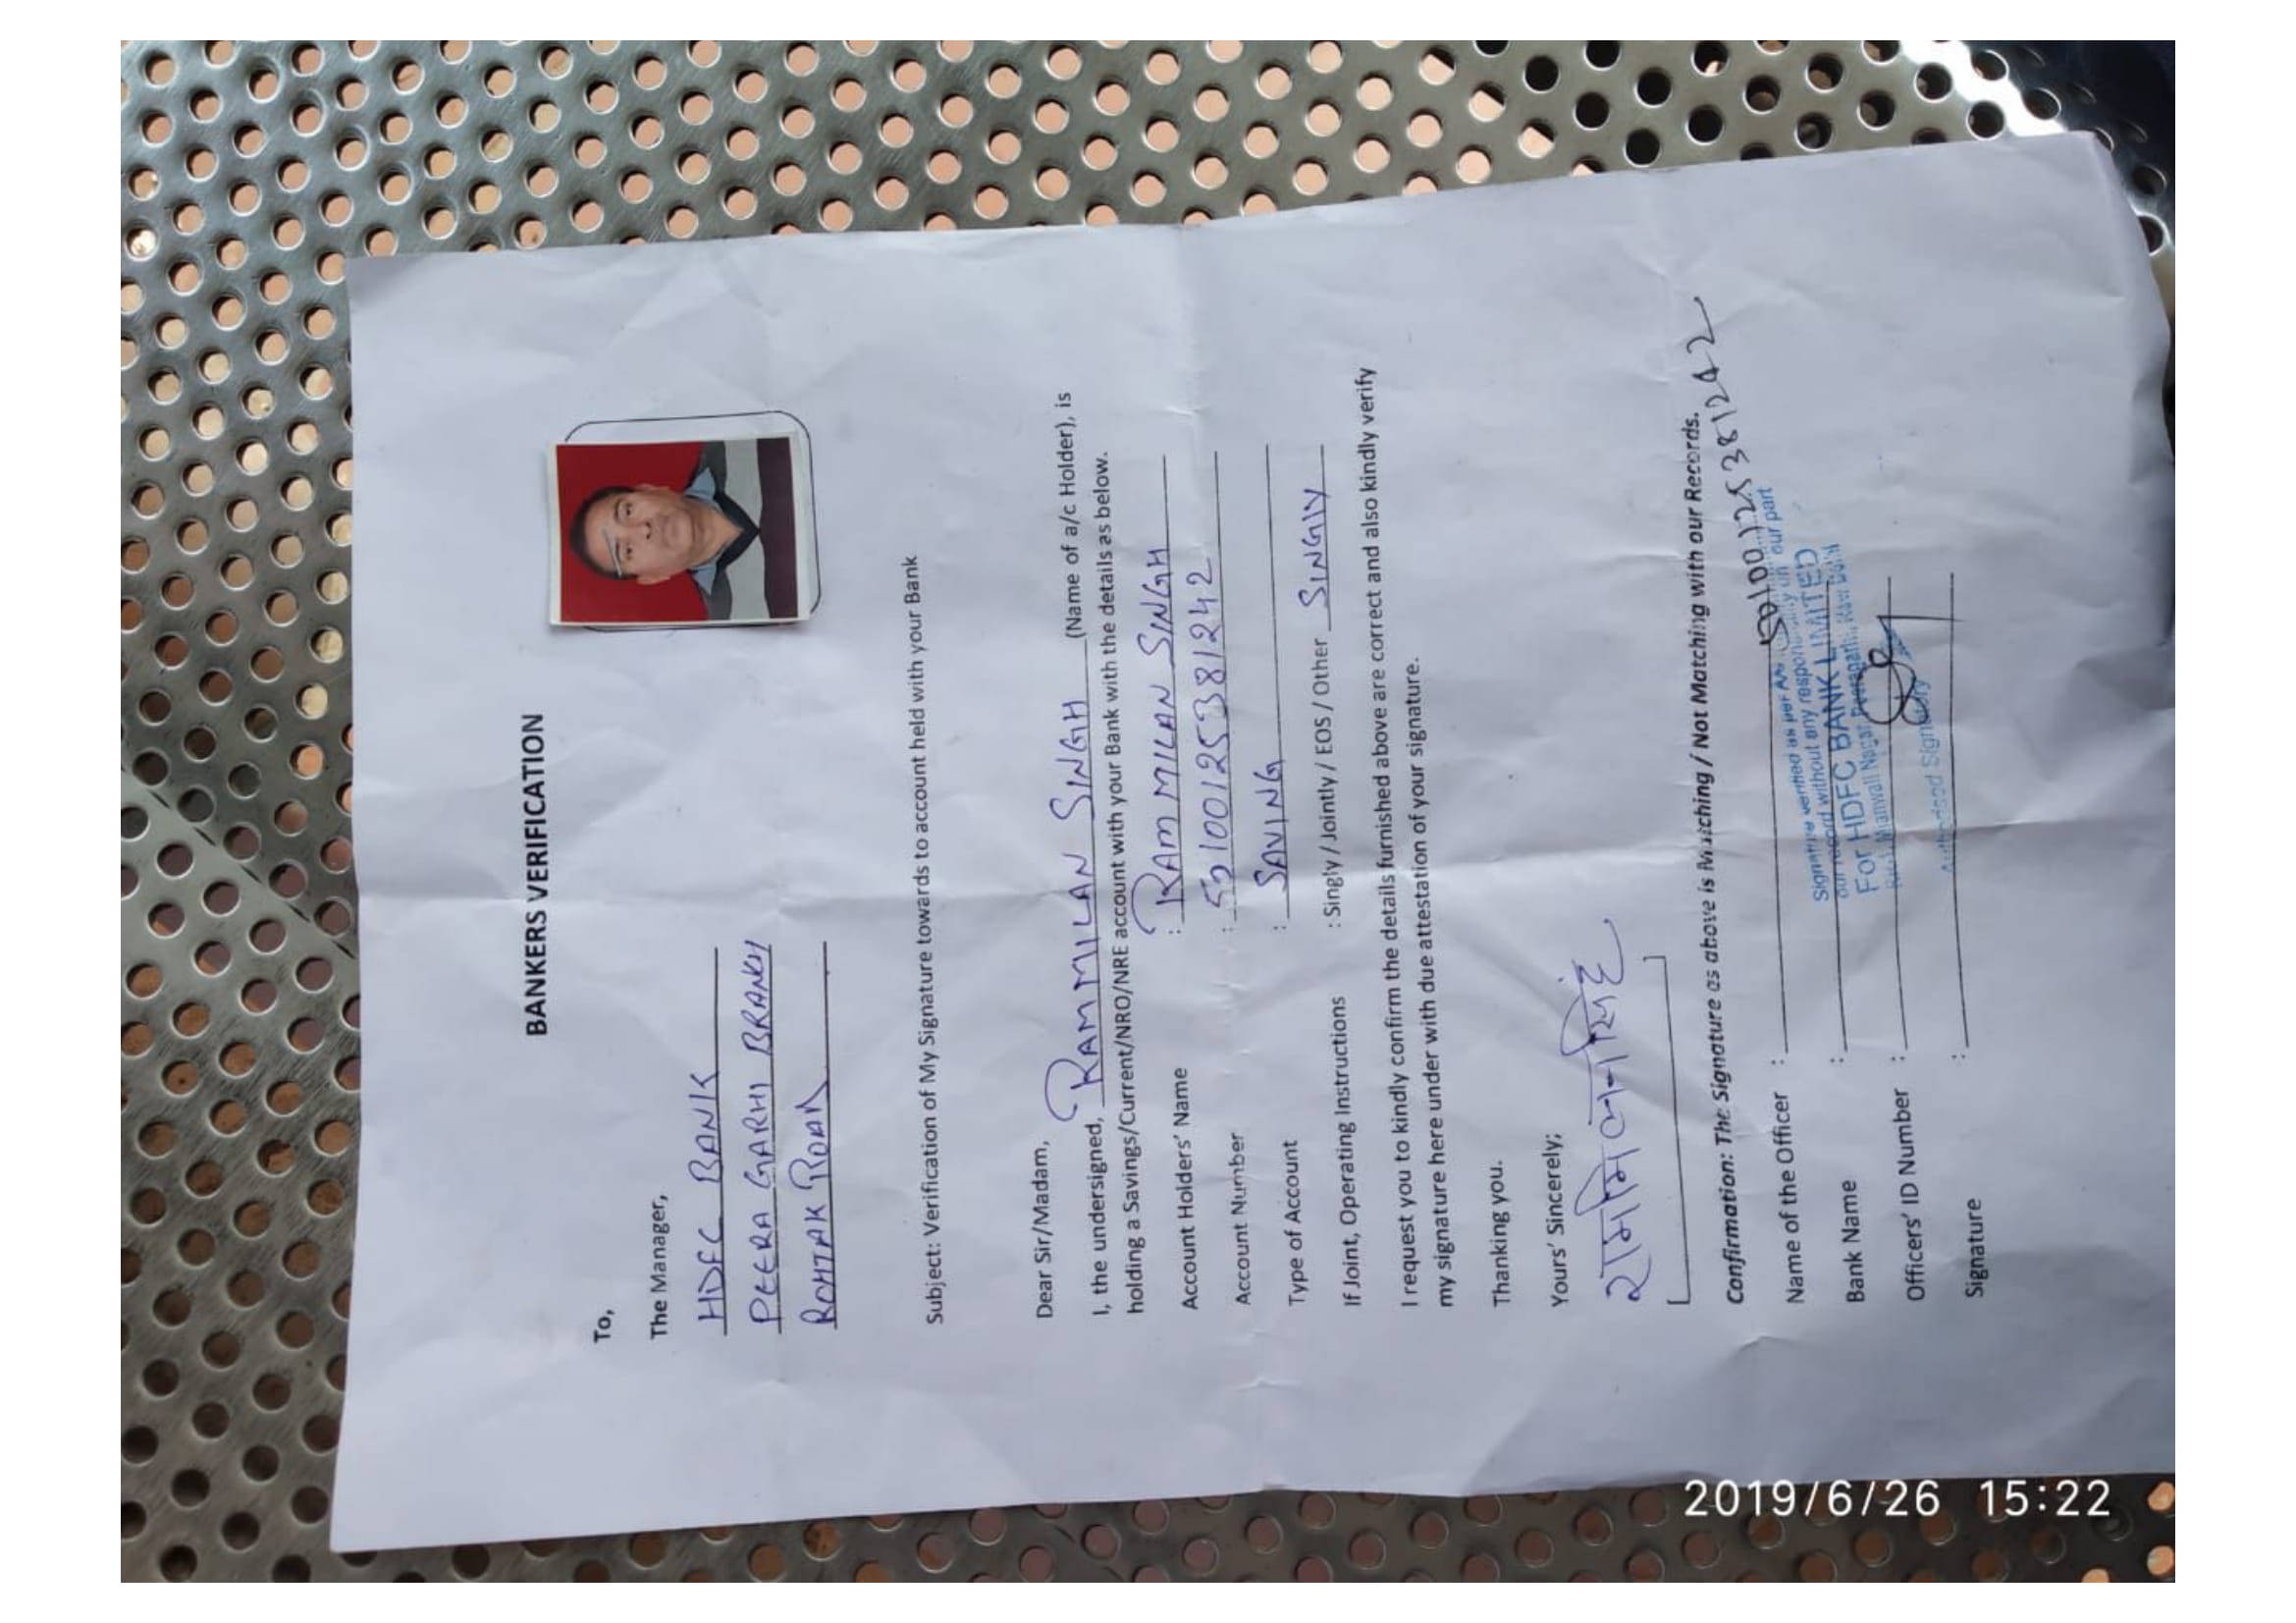 BANKERS VERIFICATION
To,
The Manager,
HDFC BANK
PEERA GARHI BRANCH
ROHTAK ROAD
Subject: Verification of My Signature towards to account held with your Bank
Dear Sir/Madam,
I, the undersigned, RAMMILAN SINGH (Name of a/c Holder), is
holding a Savings/Current/NRO/NRE account with your Bank with the details as below.
Account Holders' Name : RAM MILAN SINGH
Account Number : 50100125381242
Type of Account : SAVING
If Joint, Operating Instructions : Singly / Jointly / EOS / Other SINGLY
I request you to kindly confirm the details furnished above are correct and also kindly verify
my signature here under with due attestation of your signature.
Thanking you.
Yours' Sincerely;
राममिलन सिंह
Confirmation: The Signature as above is Matching / Not Matching with our Records.
50100125381242
Name of the Officer :
Signature verified as per A/c our part
our record without any responsibility on
Bank Name :
For HDFC BANK LIMITED
Nagar, Peeragarhi, New Delhi
Officers' ID Number :
Authorised Signatory
Signature :
2019/6/26 15:22